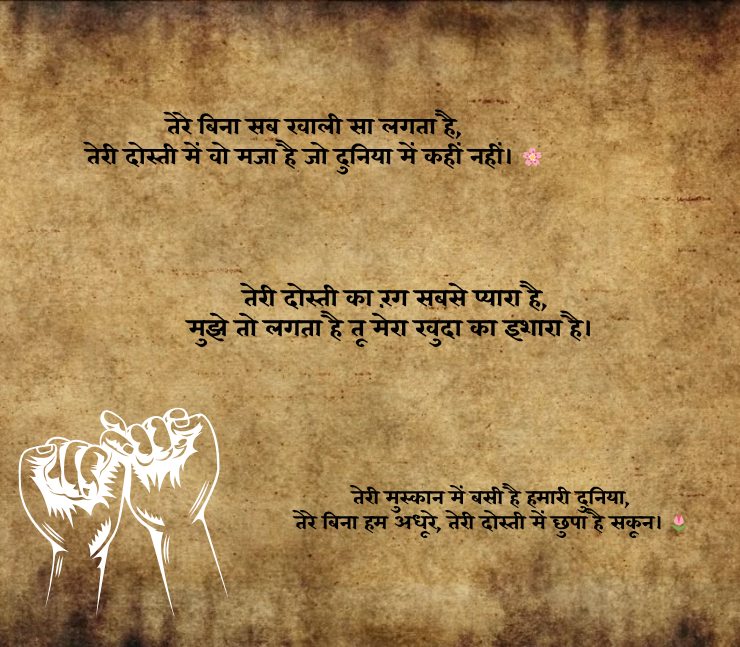 तेरे बिना सब खाली सा लगता है,
तेरी दोस्ती में वो मजा है जो दुनिया में कहीं नहीं। 🌸
तेरी दोस्ती का रंग सबसे प्यारा है,
मुझे तो लगता है तू मेरा खुदा का इशारा है।
तेरी मुस्कान में बसी है हमारी दुनिया,
तेरे बिना हम अधूरे, तेरी दोस्ती में छुपा है सकून। 🌷